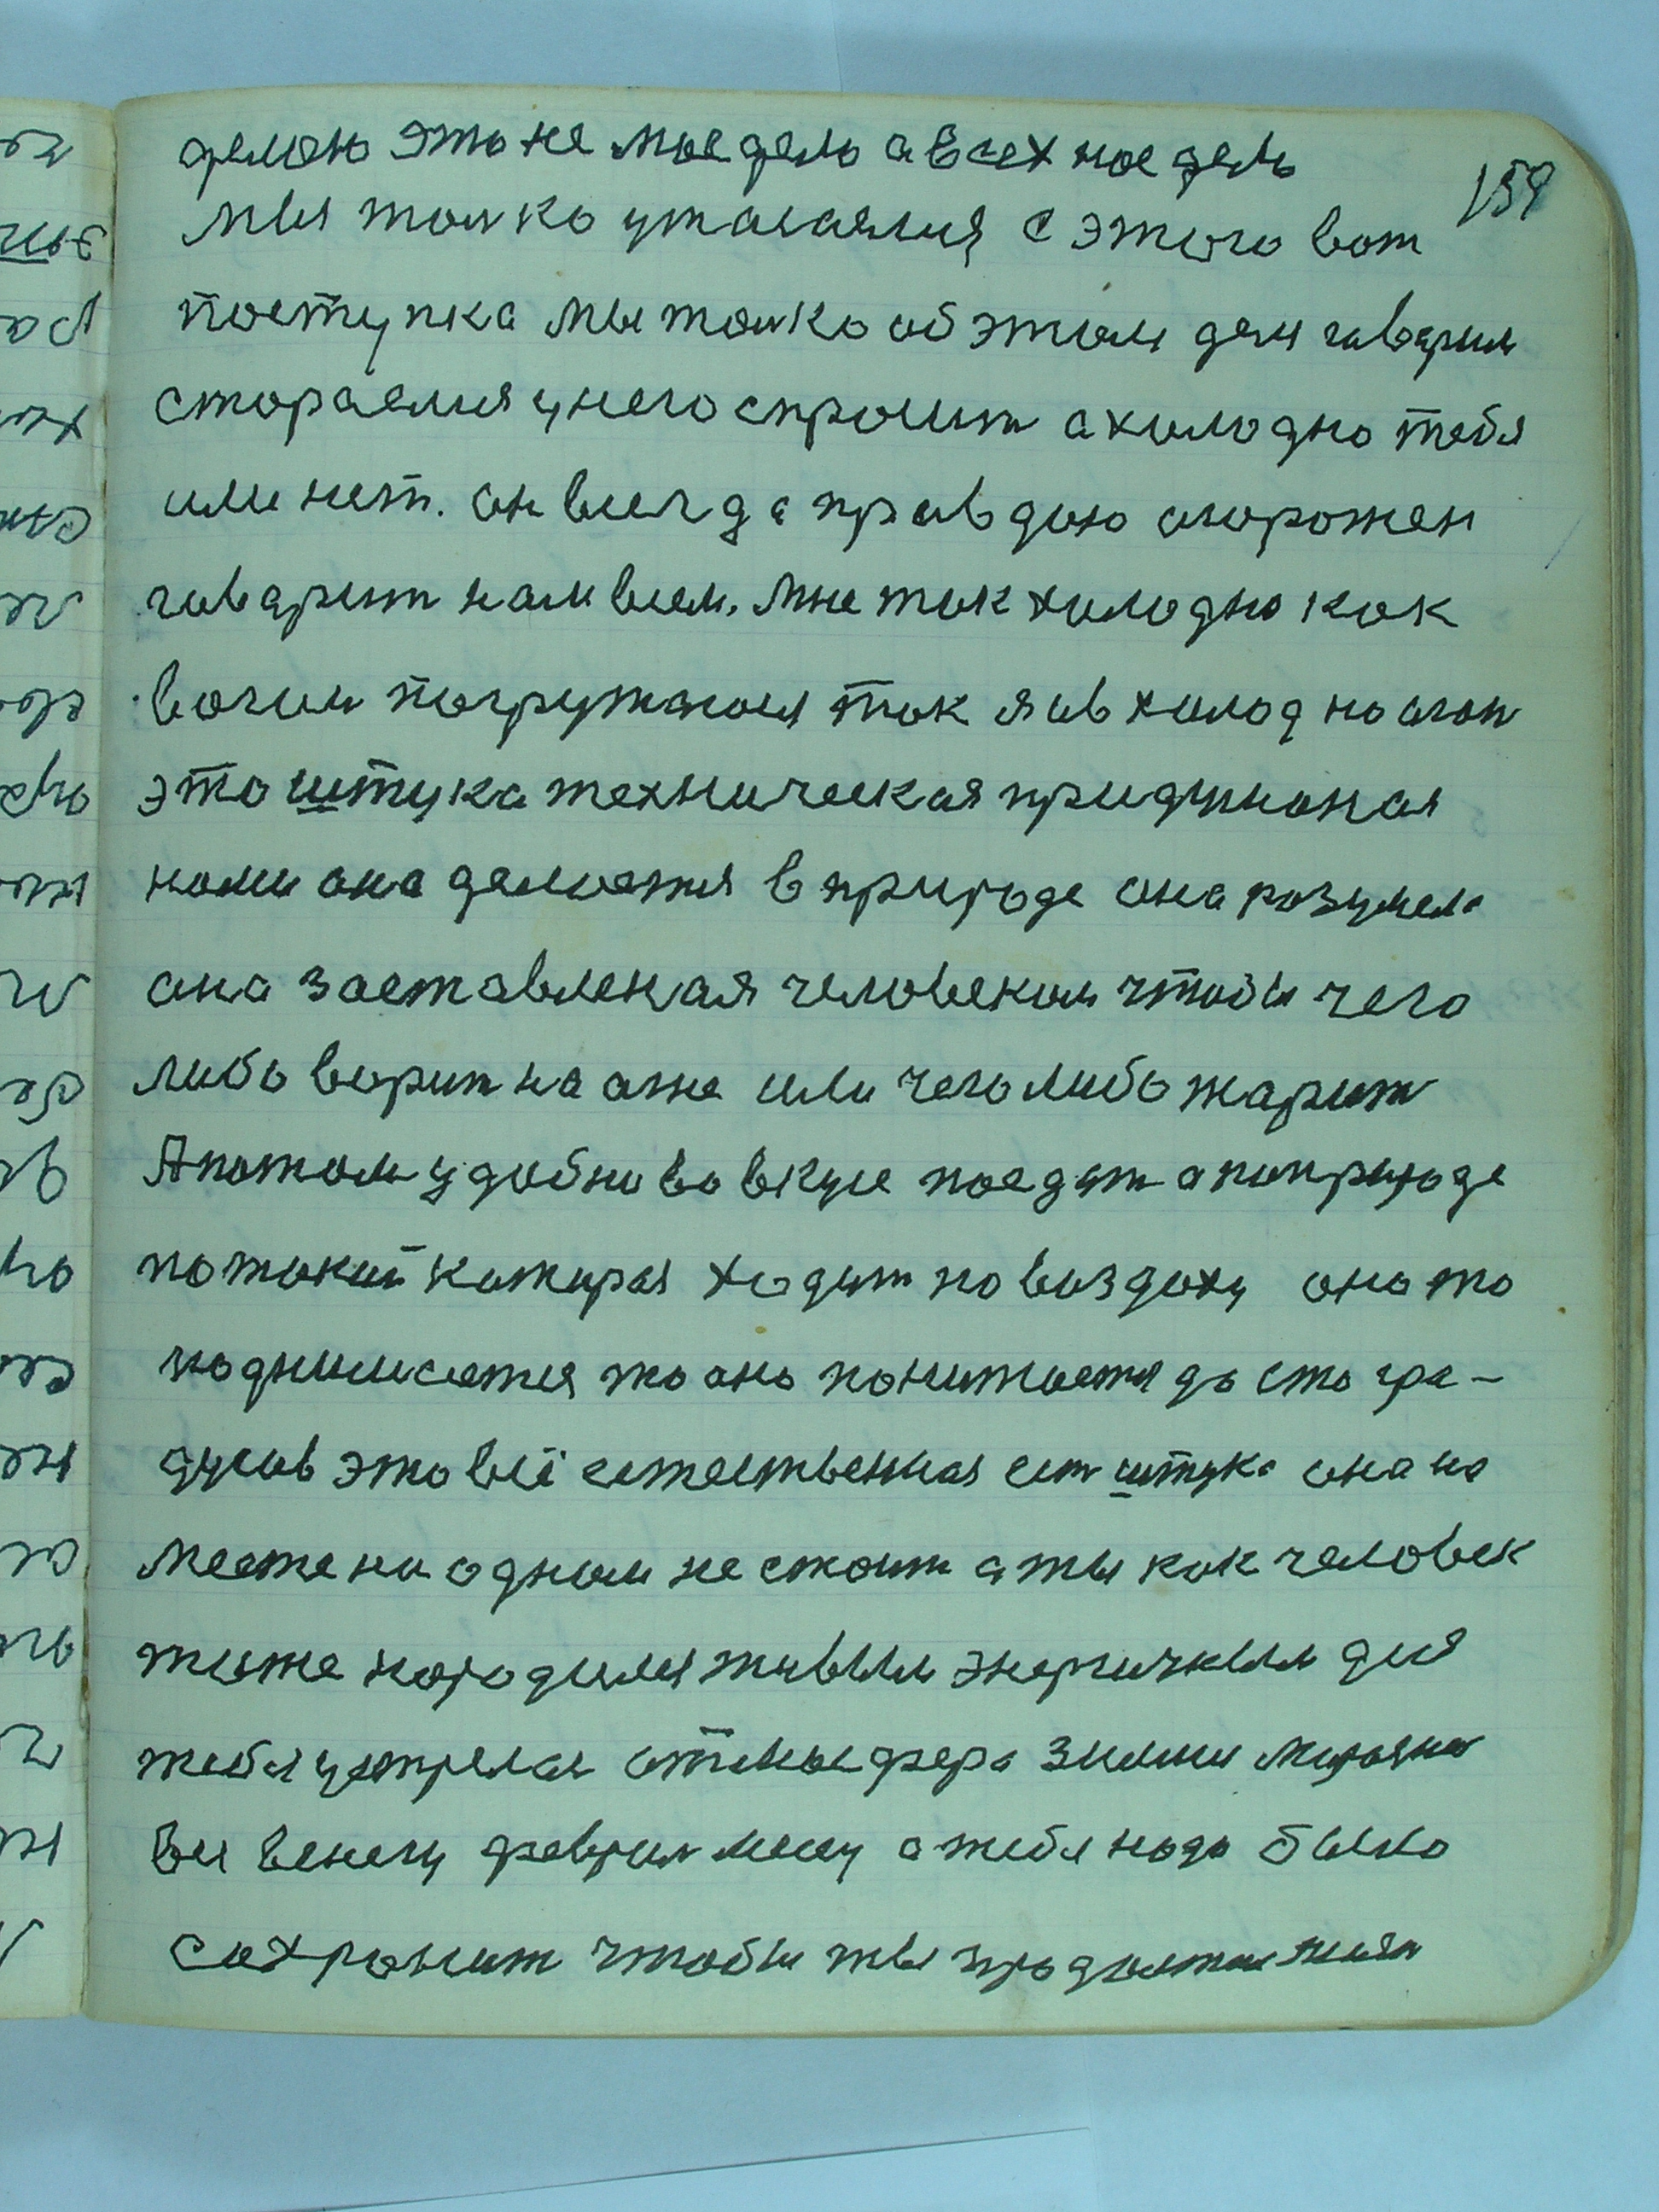 159
делаю это не мое дело а всех ное дело
мы толко утаваямия с этого вот
поступка мы толко об этом деле гаварим
стораемия у него спросит а холодно тебя
или нет. он всегда правдою огорожен
гаварит нам всем. мне так холодно как
вогим погружаюя так я и в холод но огон
это штука техническая придуманая
нами она делается в природе она розумела
она заставленая человеком чтобы чего
либо ворит на огне или чего либо жарит
А потом удобно во вкусе поедят а по природе
потокий которая ходит по воздоху она то
поднимается то она понижается до сто гра-
дусов это всё естественная ест штука она на
месте на одном не стоит а ты как человек
тоже народился живым энергичным для
тебя устрелая атмосфера зимии
 февралмесу а тебя надо было
сохранит чтобы ты продолжал жизн